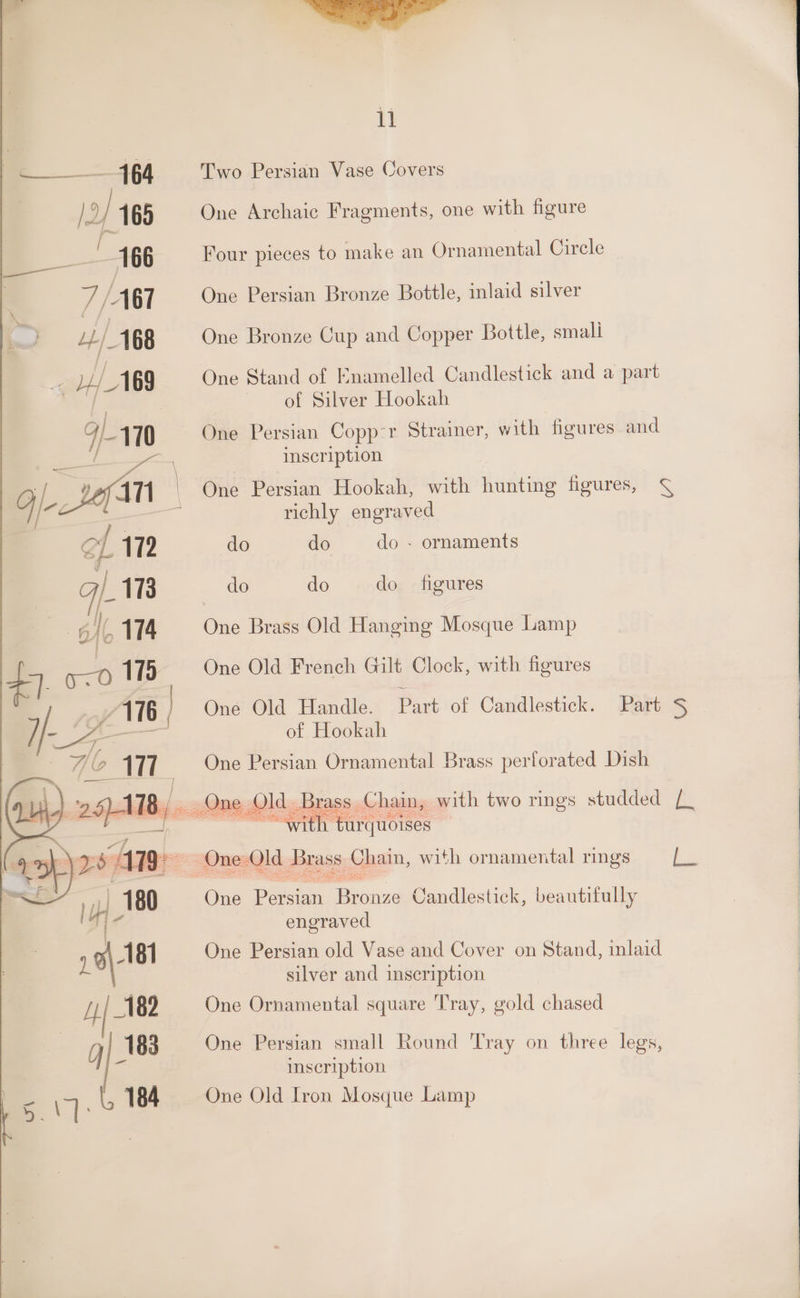 11
164 Two Persian Vase Covers
12/ 165 One Archaic Fragments, one with figure
166 Four pieces to make an Ornamental Circle
7/ 167 One Persian Bronze Bottle, inlaid silver
4/ 168 One Bronze Cup and Copper Bottle, small
14/ 169 One Stand of Enamelled Candlestick and a part
of Silver Hookah
9/- 170 One Persian Copp-r Strainer, with figures and
inscription
9/- 171 One Persian Hookah, with hunting figures,
richly engraved
172 do do do - ornaments
9/- 173 do do do figures
174 One Brass Old Hanging Mosque Lamp
£7. 0-0 175 One Old French Gilt Clock, with figures
7/- 176 One Old Handle. Part of Candlestick. Part
of Hookah
7/6 177 One Persian Ornamental Brass perforated Dish
25/- 178 One Old Brass Chain, with two rings studded
with turquoises
179 One Old Brass Chain, with ornamental rings
14/- 180 One Persian Bronze Candlestick, beautifully
engraved
181 One Persian old Vase and Cover on Stand, inlaid
silver and inscription
4/- 182 One Ornamental square Tray, gold chased
9/- 183 One Persian small Round Tray on three legs,
inscription
5. 17. 6 184 One Old Iron Mosque Lamp